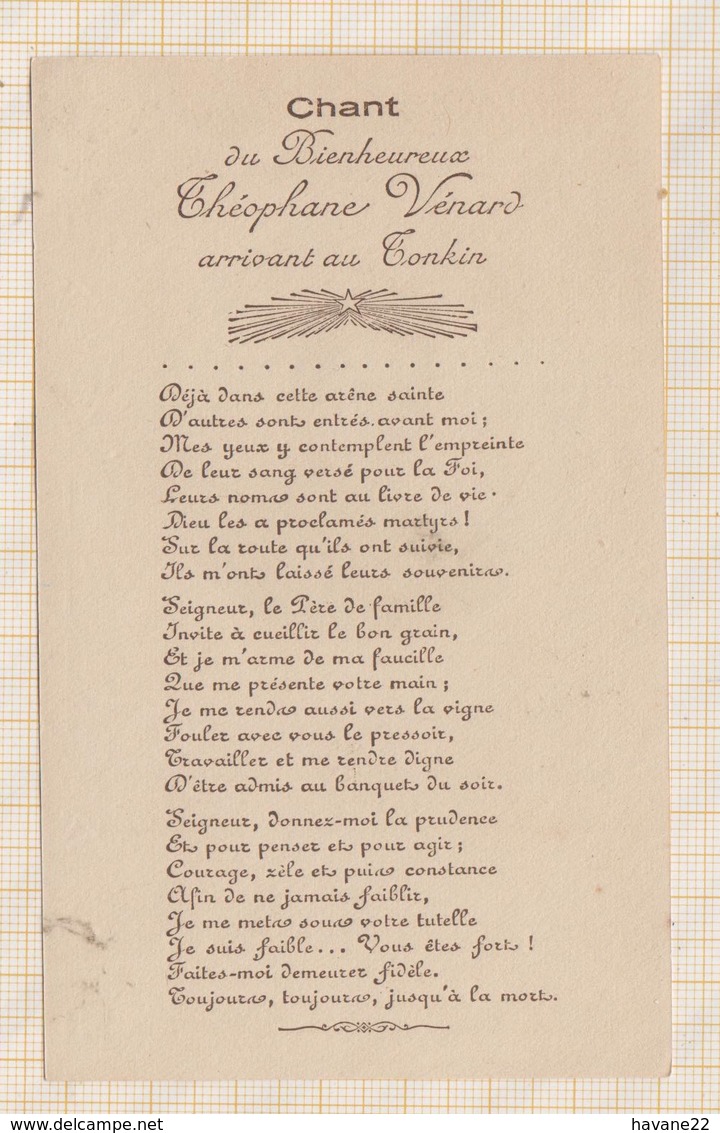 Chant
du Bienheureux
Théophane Vénard
arrivant au Tonkin
. . . . . . . . . . . . . . . . .
Déjà dans cette arêne sainte
D'autres sont entrés avant moi ;
Mes yeux y contemplent l'empreinte
De leur sang versé pour la Foi,
Leurs noms sont au livre de vie.
Dieu les a proclamés martyrs !
Sur la route qu'ils ont suivie,
Ils m'ont laissé leurs souvenirs.
Seigneur, le Père de famille
Invite à cueillir le bon grain,
Et je m'arme de ma faucille
Que me présente votre main ;
Je me rends aussi vers la vigne
Fouler avec vous le pressoir,
Travailler et me rendre digne
D'être admis au banquet du soir.
Seigneur, donnez-moi la prudence
Et pour penser et pour agir ;
Courage, zèle et puis constance
Afin de ne jamais faiblir,
Je me mets sous votre tutelle
Je suis faible... Vous êtes fort !
Faites-moi demeurer fidèle.
Toujours, toujours, jusqu'à la mort.
delcampe.net
havane22